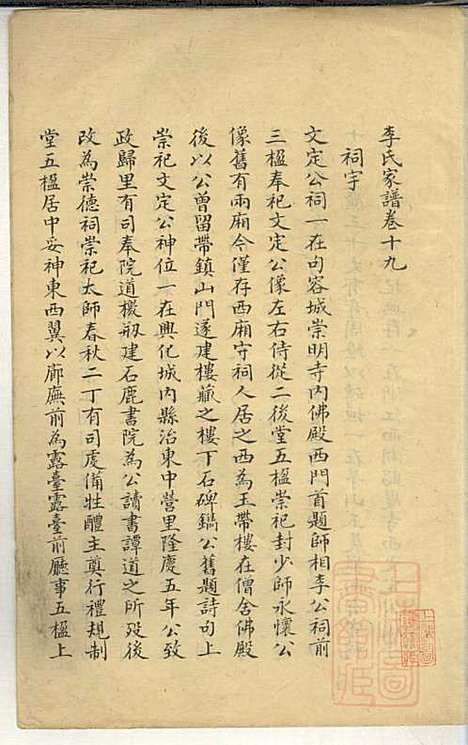 李氏家譜卷十九
祠宇
文定公祠一在句容城崇明寺內佛殿西門首題師相李公祠前
三楹奉祀文定公像左右侍從二後堂五楹崇祀封少師永懷公
像舊有兩廂今僅存西廂守祠人居之西為玉帶樓在僧舍佛殿
後以公曾留帶鎮山門遂建樓藏之樓下石碑鐫公舊題詩句上
崇祀文定公神位一在興化城內縣治東中營里隆慶五年公致
政歸里有司奉院道檄剏建石鹿書院為公讀書譚道之所歿後
改為崇德祠崇祀太師春秋二丁有司虔備牲醴主奠行禮規制
堂五楹居中妥神東西翼以廊廡前為露臺露臺前廳事五楹上